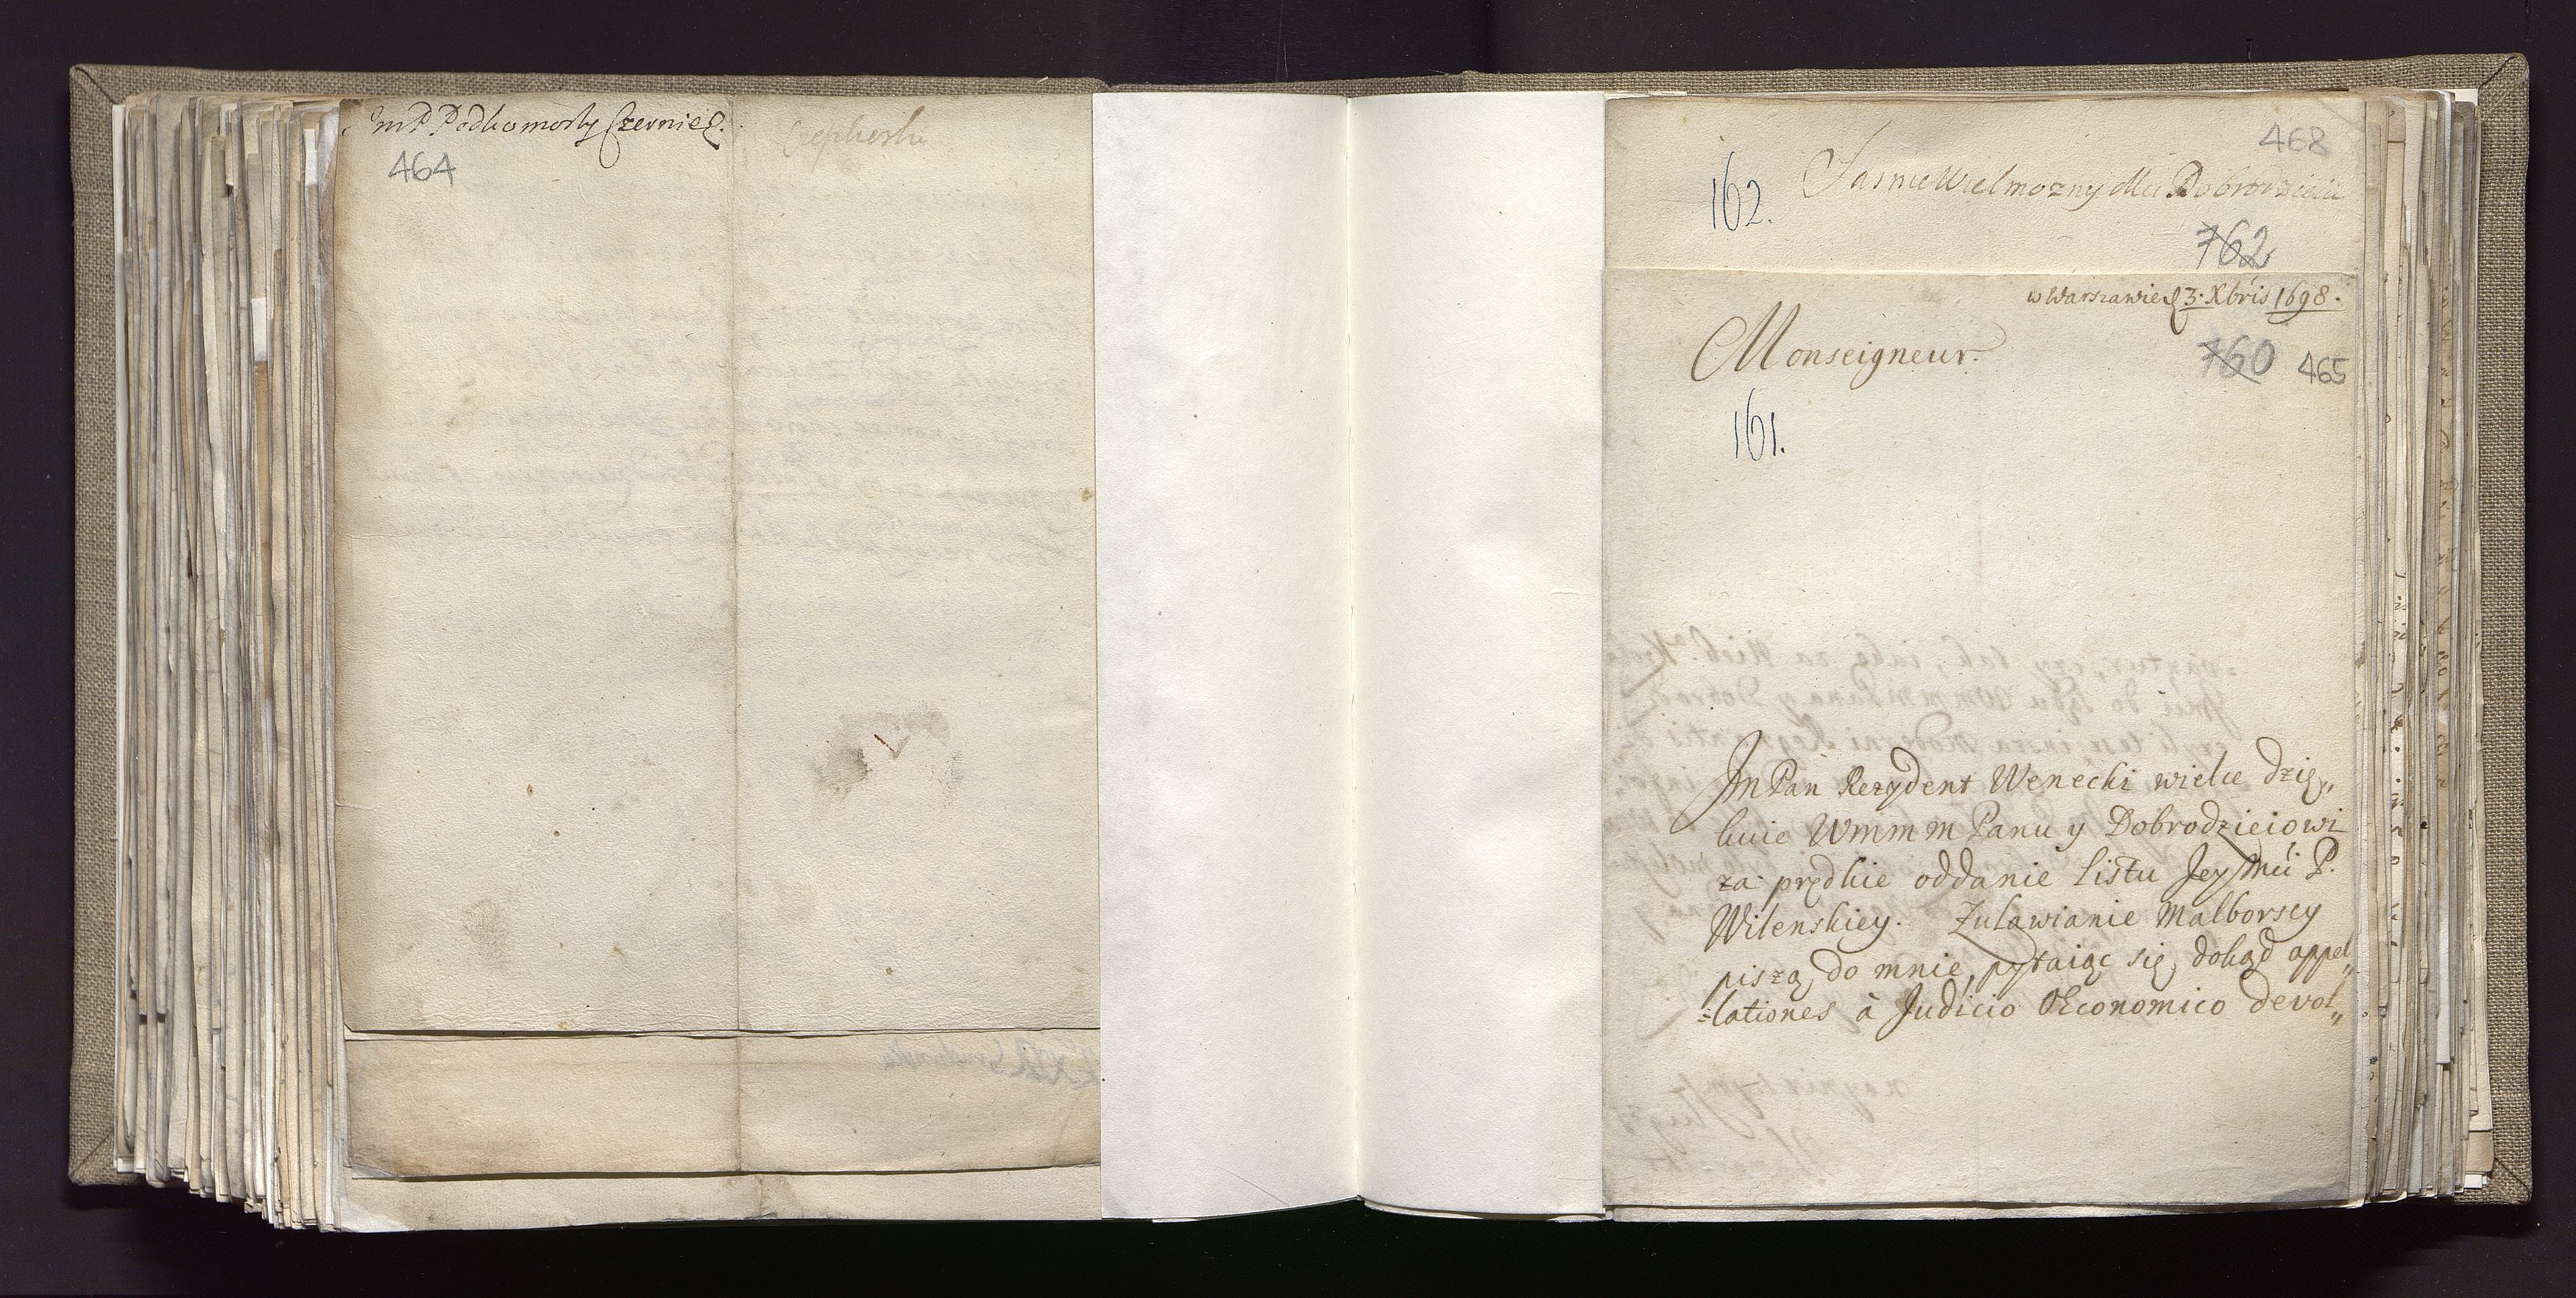 JmP Podkomorzy Czerniec.
Czepkoski
464
468
162.
Jasnie Wielmozny Mci Dobrodzieiu
762
w Warszawie d 3. Xbris 1698.
Monseigneur.
760 465
161.
Jm Pan Rezydent Wenecki wielce dzię„
kuie Wmmm Panu y Dobrodzieiowi
za prędkie oddanie listu Jey Mći P.
Wilenskiey. Zulawianie Malborscy
piszą do mnie, pytaiąc się, dokąd appel„
=lationes à Judicio OEconomico devol„